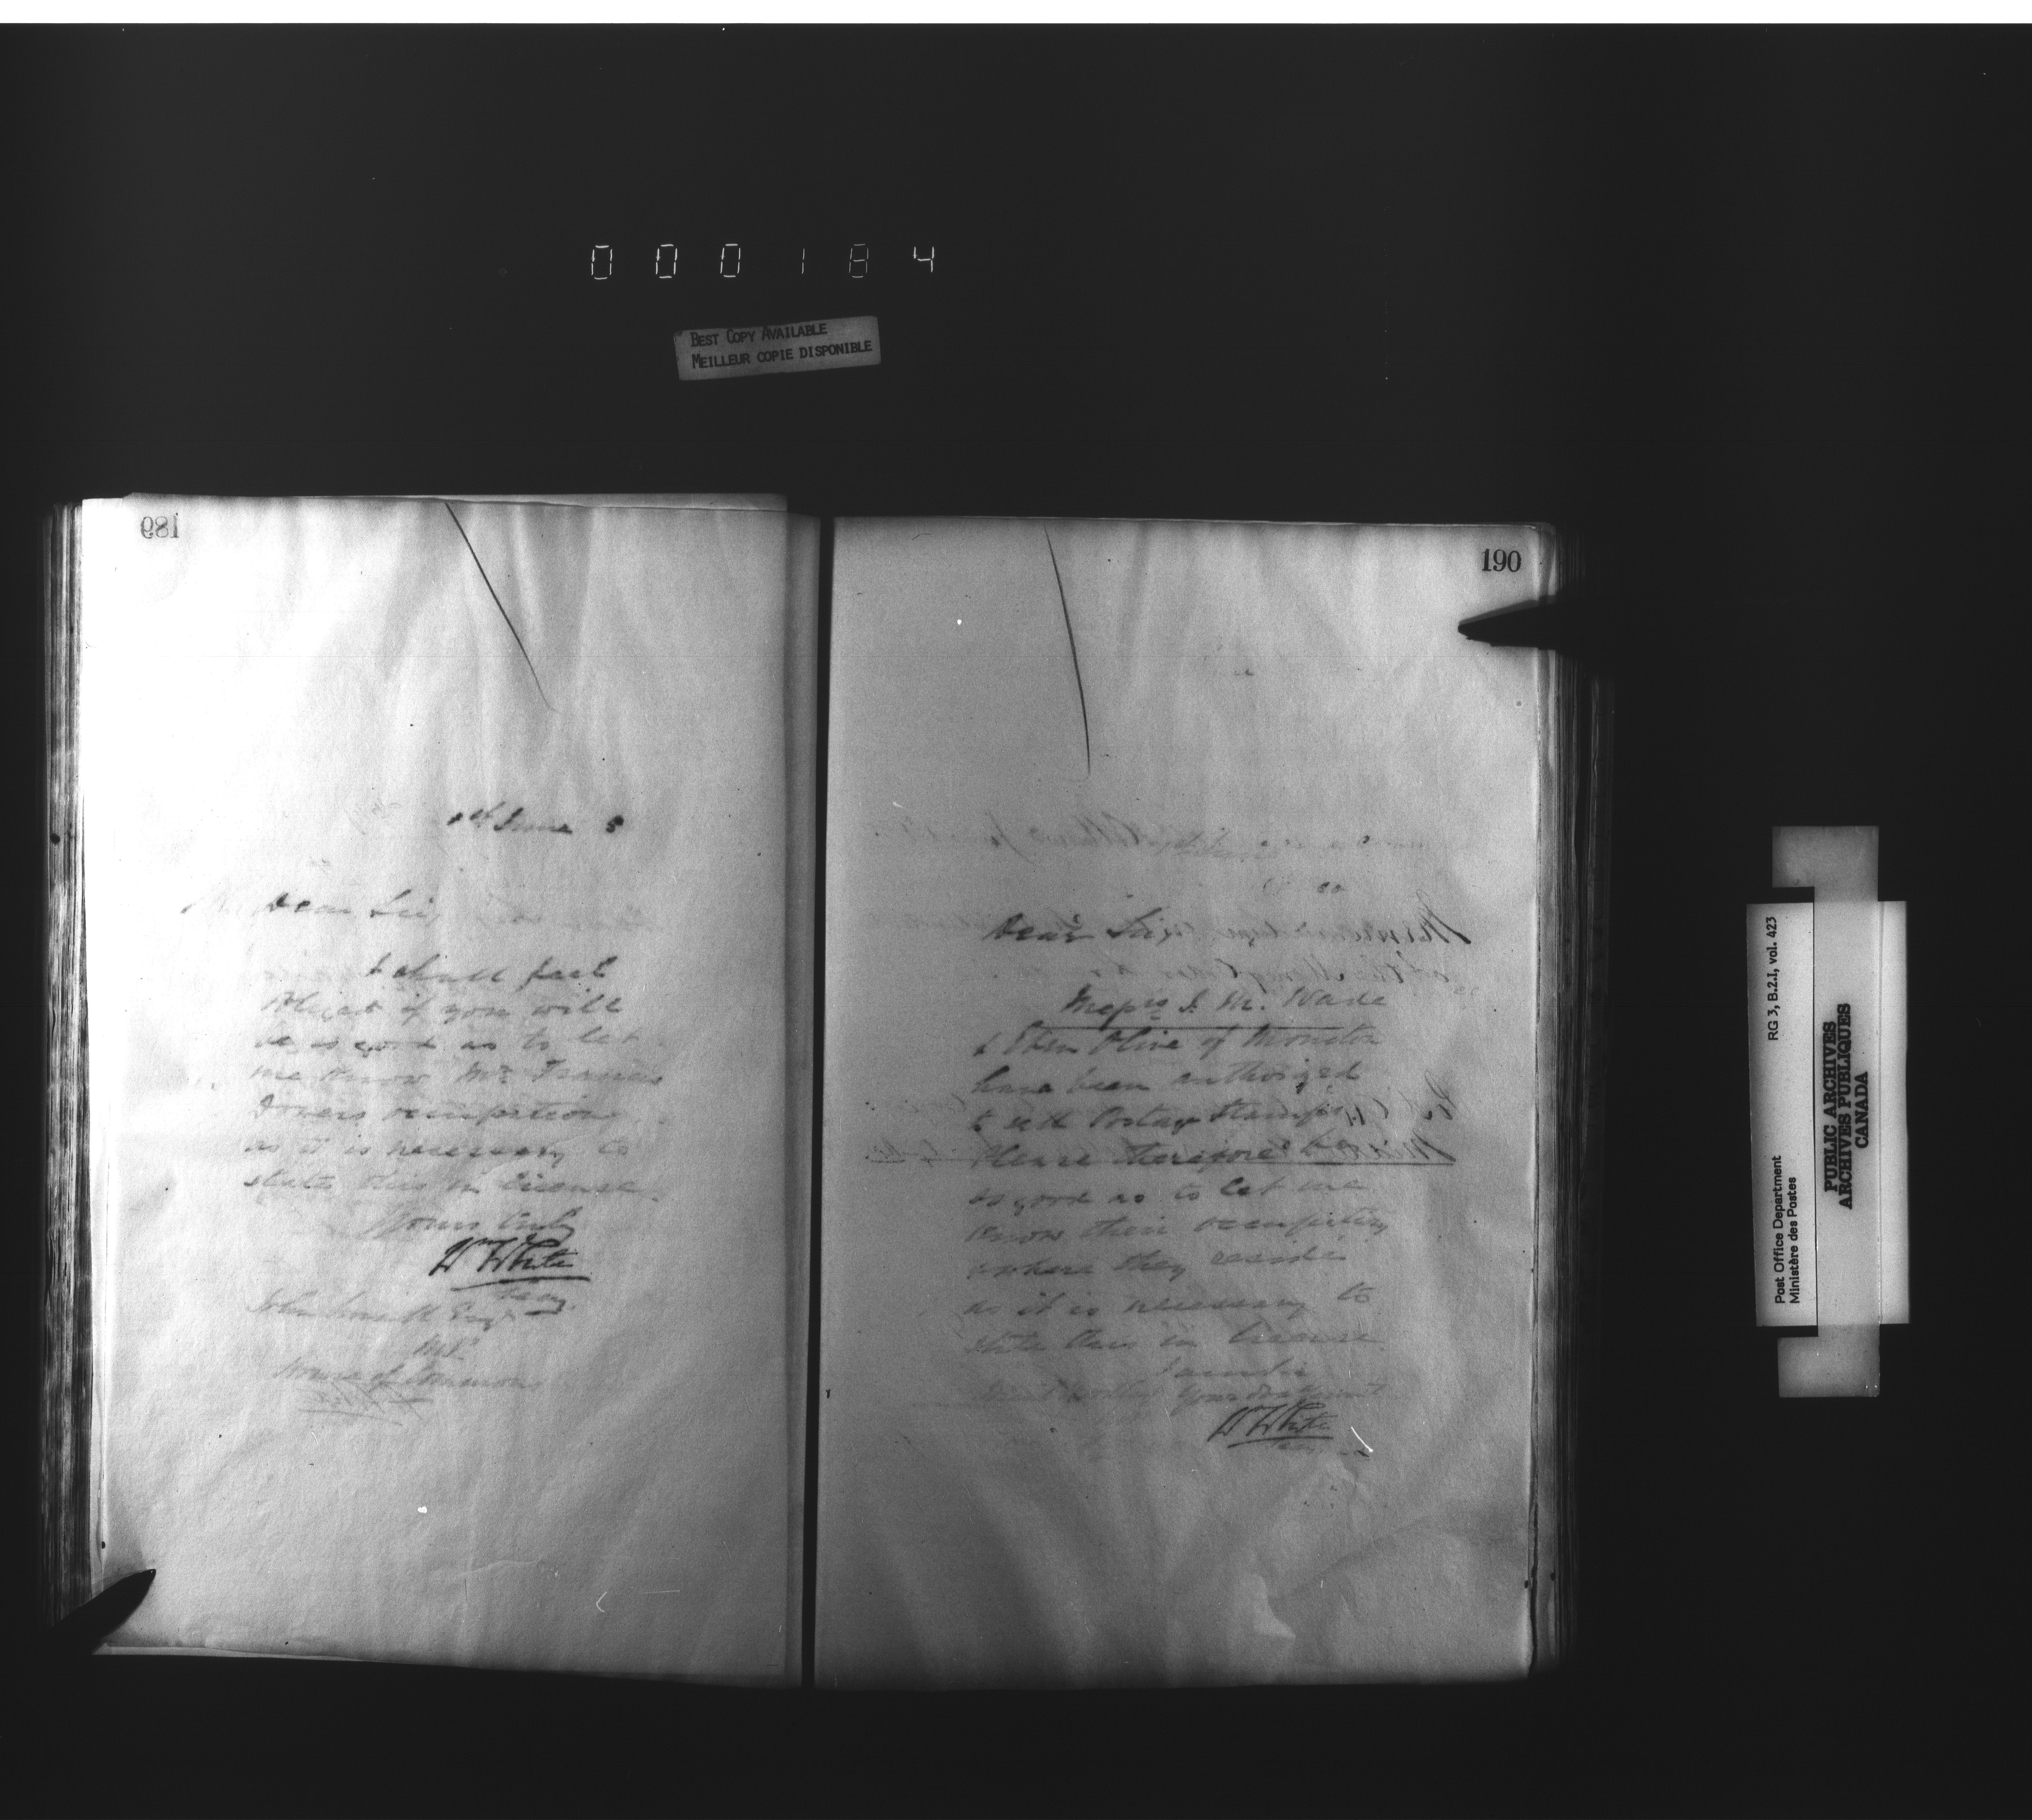 000184
BEST COPY AVAILABLE
MEILLEUR COPIE DISPONIBLE
189
1st June 8
Dear Sir,
I shall feel
obliged if you will
be so good as to let
me know Mr. Francis
occupation
as it is necessary to
state this in license.
Yours truly
Wm White
Secy.
John Esqr
M.P.
House of Commons
190
Dear Sir,
Messrs. J. M. Wade
& Eben Olive of Moncton
have been authorized
to sell Postage Stamps
Please therefore be
so good as to let me
know their occupation
& where they reside
as it is necessary to
state this in license.
Wm White
RG 3, B.2.I, vol. 423
Post Office Department
Ministère des Postes
PUBLIC ARCHIVES
ARCHIVES PUBLIQUES
CANADA